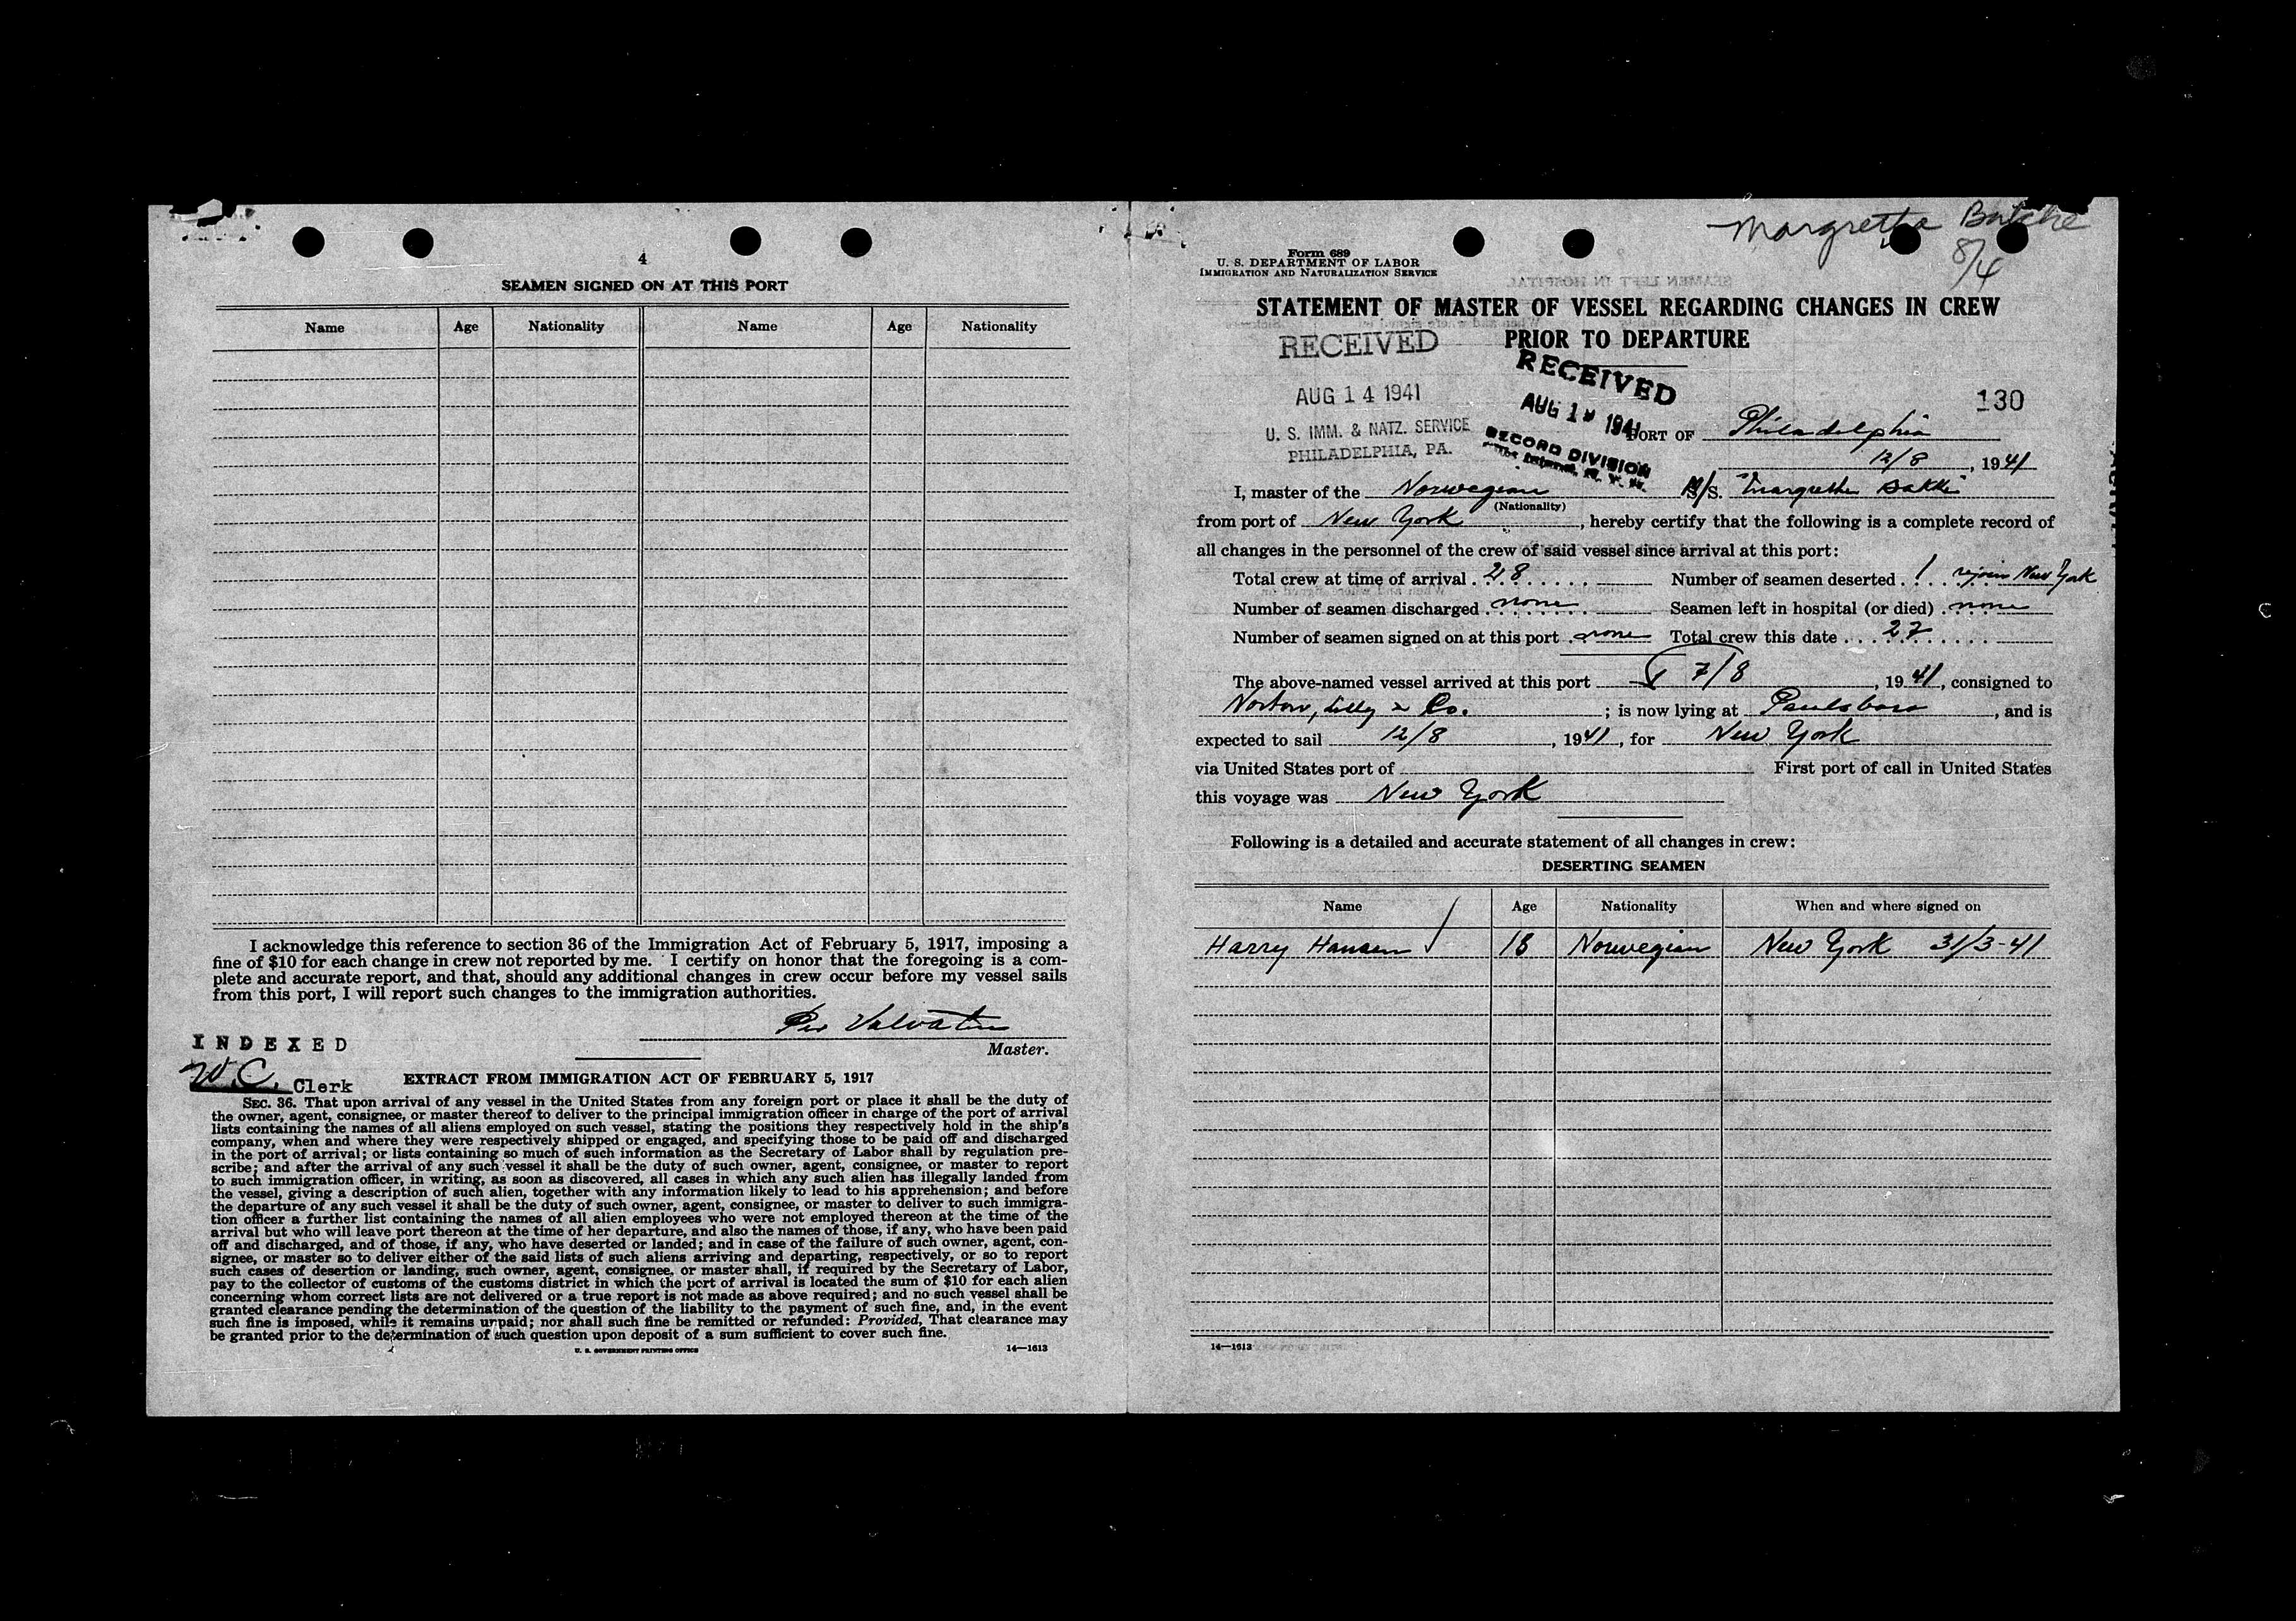 4
SEAMEN SIGNED ON AT THIS PORT
Name Age Nationality Name Age Nationality
I acknowledge this reference to section 36 of the Immigration Act of February 5, 1917, imposing a
fine of $10 for each change in crew not reported by me. I certify on honor that the foregoing is a com-
plete and accurate report, and that, should any additional changes in crew occur before my vessel sails
from this port, I will report such changes to the immigration authorities.
Per
Master.
INDEXED
W.C. Clerk
EXTRACT FROM IMMIGRATION ACT OF FEBRUARY 5, 1917
SEC. 36. That upon arrival of any vessel in the United States from any foreign port or place it shall be the duty of
the owner, agent, consignee, or master thereof to deliver to the principal immigration officer in charge of the port of arrival
lists containing the names of all aliens employed on such vessel, stating the positions they respectively hold in the ship's
company, when and where they were respectively shipped or engaged, and specifying those to be paid off and discharged
in the port of arrival; or lists containing so much of such information as the Secretary of Labor shall by regulation pre-
scribe; and after the arrival of any such vessel it shall be the duty of such owner, agent, consignee, or master to report
to such immigration officer, in writing, as soon as discovered, all cases in which any such alien has illegally landed from
the vessel, giving a description of such alien, together with any information likely to lead to his apprehension; and before
the departure of any such vessel it shall be the duty of such owner, agent, consignee, or master to deliver to such immigra-
tion officer a further list containing the names of all alien employees who were not employed thereon at the time of the
arrival but who will leave port thereon at the time of her departure, and also the names of those, if any, who have been paid
off and discharged, and of those, if any, who have deserted or landed; and in case of the failure of such owner, agent, con-
signee, or master so to deliver either of the said lists of such aliens arriving and departing, respectively, or so to report
such cases of desertion or landing, such owner, agent, consignee, or master shall, if required by the Secretary of Labor,
pay to the collector of customs of the customs district in which the port of arrival is located the sum of $10 for each alien
concerning whom correct lists are not delivered or a true report is not made as above required; and no such vessel shall be
granted clearance pending the determination of the question of the liability to the payment of such fine, and, in the event
such fine is imposed, while it remains unpaid; nor shall such fine be remitted or refunded: Provided, That clearance may
be granted prior to the determination of such question upon deposit of a sum sufficient to cover such fine.
U. S. GOVERNMENT PRINTING OFFICE 14—1613
Margretha
8/4
Form 689
U. S. DEPARTMENT OF LABOR
IMMIGRATION AND NATURALIZATION SERVICE
STATEMENT OF MASTER OF VESSEL REGARDING CHANGES IN CREW
PRIOR TO DEPARTURE
RECEIVED
AUG 14 1941
U. S. IMM. & NATZ. SERVICE
PHILADELPHIA, PA.
RECEIVED
AUG 1 1941
RECORD DIVISION
130
PORT OF Philadelphia
12/8, 1941
I, master of the Norwegian M/S. "Margrethe Bakke"
(Nationality)
from port of New York, hereby certify that the following is a complete record of
all changes in the personnel of the crew of said vessel since arrival at this port:
Total crew at time of arrival 28 Number of seamen deserted 1 rejoin New York
Number of seamen discharged none Seamen left in hospital (or died) none
Number of seamen signed on at this port none Total crew this date 27
The above-named vessel arrived at this port 7/8, 1941, consigned to
Norton, Lilly & Co.; is now lying at Paulsboro, and is
expected to sail 12/8, 1941, for New York
via United States port of First port of call in United States
this voyage was New York
Following is a detailed and accurate statement of all changes in crew:
DESERTING SEAMEN
Name Age Nationality When and where signed on
Harry Hansen 18 Norwegian New York 31/3-41
14—1613